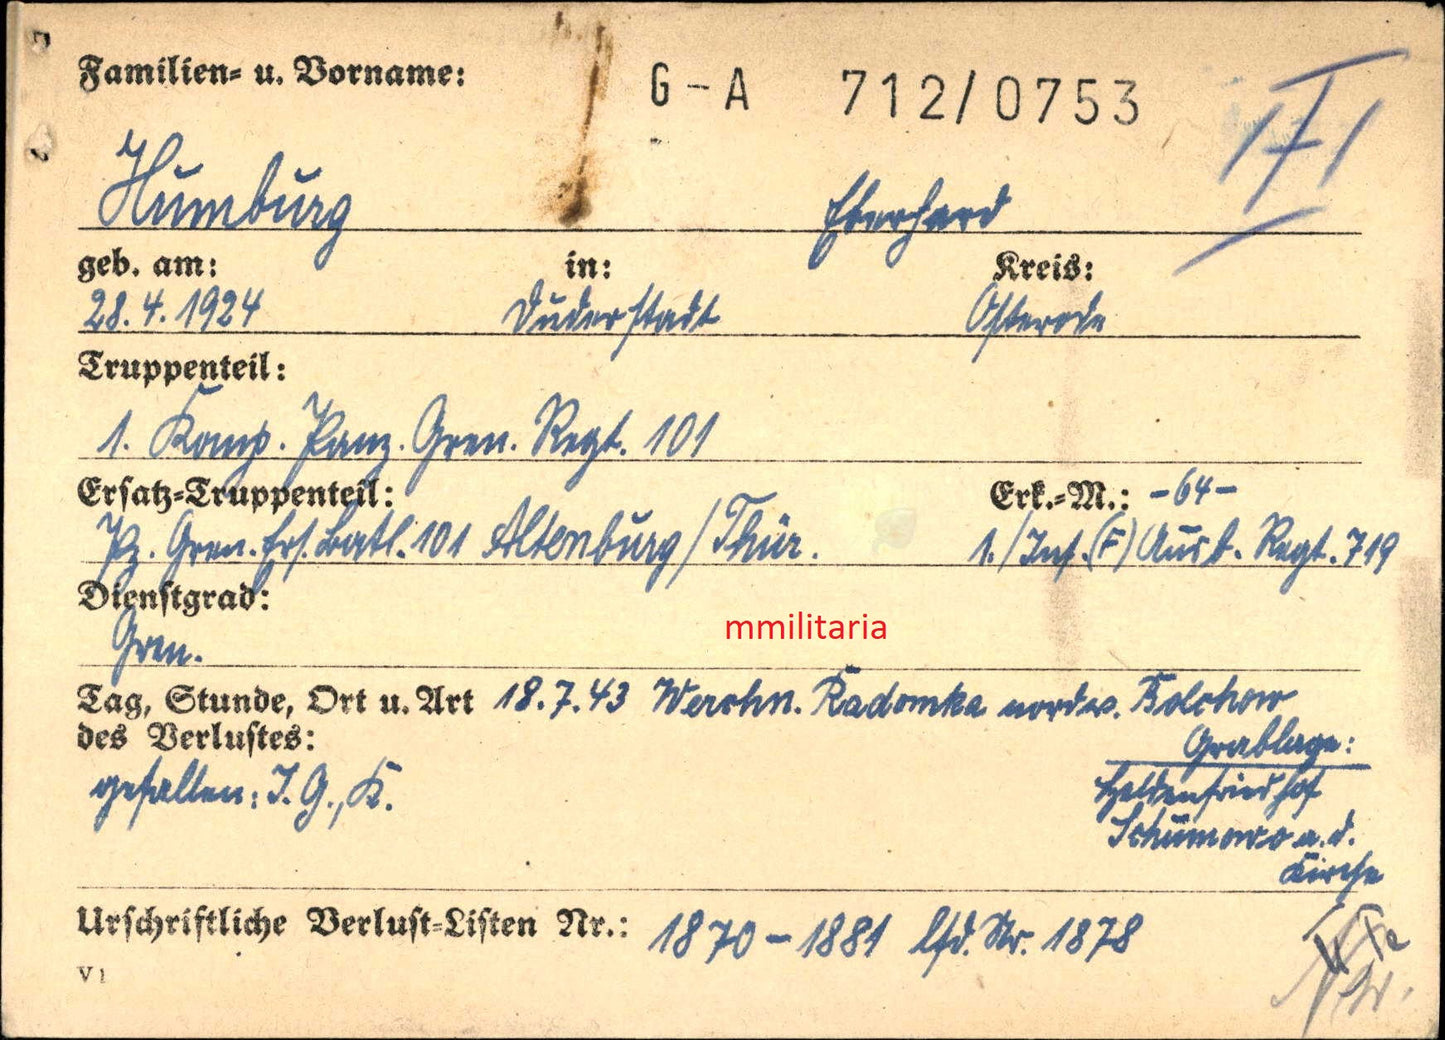 Familien- u. Vorname:
G-A 712/0753
Humburg Eberhard
geb. am: in: Kreis:
28.4.1924 Duderstadt Osterode
Truppenteil:
1. Komp. Panz. Gren. Regt. 101
Ersatz-Truppenteil: Erk.-M.: -64-
Pz. Gren. Ers. Batl. 101 Altenburg/Thür. 1./Inf.(F) Ausb. Regt. 719
Dienstgrad:
mmilitaria
Gren.
Tag, Stunde, Ort u. Art 18.7.43 Werchn. Radomka nordw. Bolchow
des Verlustes:
Grablage:
gefallen: I.G., K. Heldenfriedhof
Schumowo a.d.
Kirche
Urschriftliche Verlust-Listen Nr.: 1870-1881 lfd. Nr. 1878
V 1